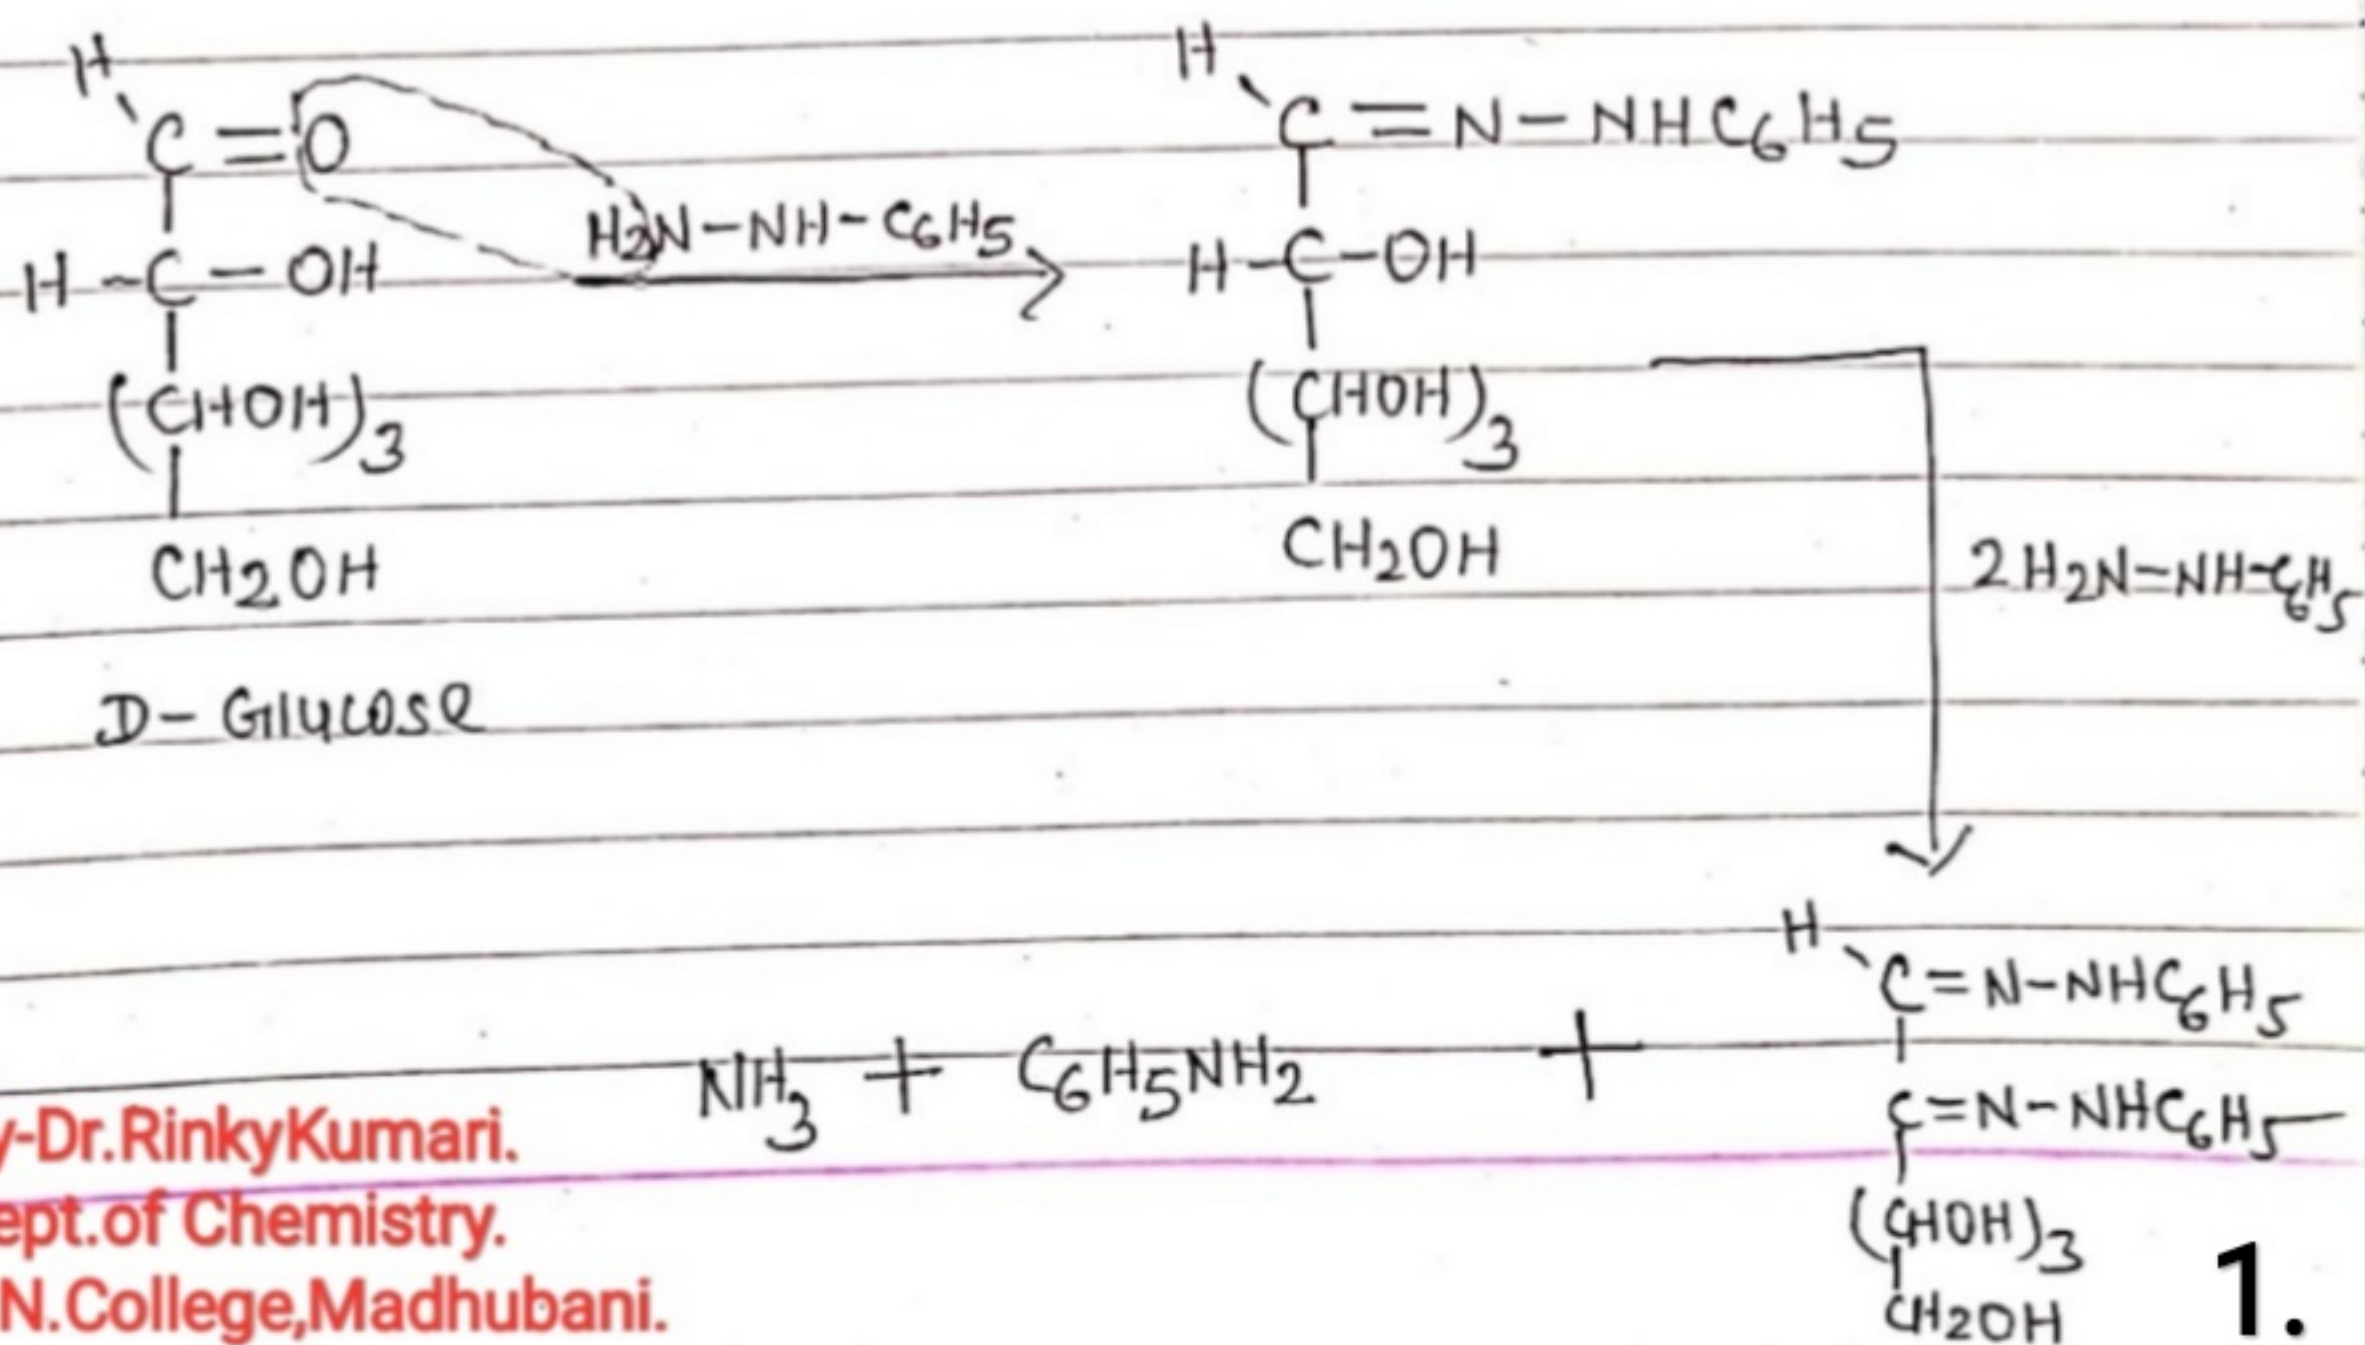 H
C=O
H2N-NH-C6H5
H-C-OH
(CHOH)3
CH2OH
D-Glucose
H
C=N-NHC6H5
H-C-OH
(CHOH)3
CH2OH
2H2N-NH-C6H5
NH3 + C6H5NH2 +
H
C=N-NHC6H5
C=N-NHC6H5
(CHOH)3
CH2OH
y-Dr.RinkyKumari.
ept.of Chemistry.
N.College,Madhubani.
1.